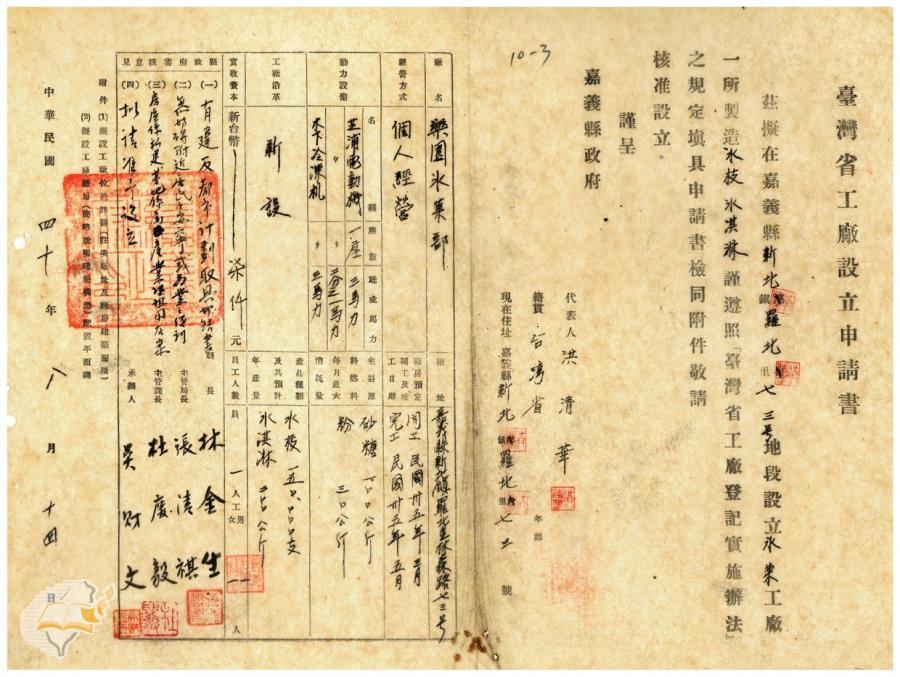 臺灣省工廠設立申請書
茲擬在嘉義縣新北鎮羅北里七三号地段設立氷菓工廠
一所製造氷枝氷淇淋謹遵照「臺灣省工廠登記實施辦法」
之規定塡具申請書檢同附件敬請
核准設立。
謹呈
嘉義縣政府
10-3
代表人 洪清華 年齡
籍貫 台灣省
現在住址 嘉義縣新北鎮羅北里七三號
廠名 樂園氷菓部
廠址 嘉義縣新北鎮羅北里林森路七三号
經營方式 個人經營
廠房預定開工及竣工日期 開工 民國卅五年三月
完工 民國卅五年五月
動力設備
名稱 座數 匹或馬力
芝浦電動機 一座 三馬力
〃 〃 二分之一馬力
木下冷凍机 〃 三馬力
主要原料總料每月最大消耗量
砂糖 一〇〇公斤
粉 三〇公斤
工廠沿革 新設
產品種類及其預計年產量
氷枝 一五〇、〇〇〇支
氷淇淋 三〇〇公斤
實收資本 新台幣 柒仟元
員工人數 員 一人 工 男 女 一 人
縣政府審核意見
(一)有違反都市計劃取具
(二)無妨碍附近居民
(三)
(四)擬請准予設立
縣長 林金生
主管局長 張清祺
主管課長 杜慶毅
承辦人 吳財文
附件(1)擬設工廠位置詳圖
(2)擬設工廠廠房
中華民國四十年八月十四日